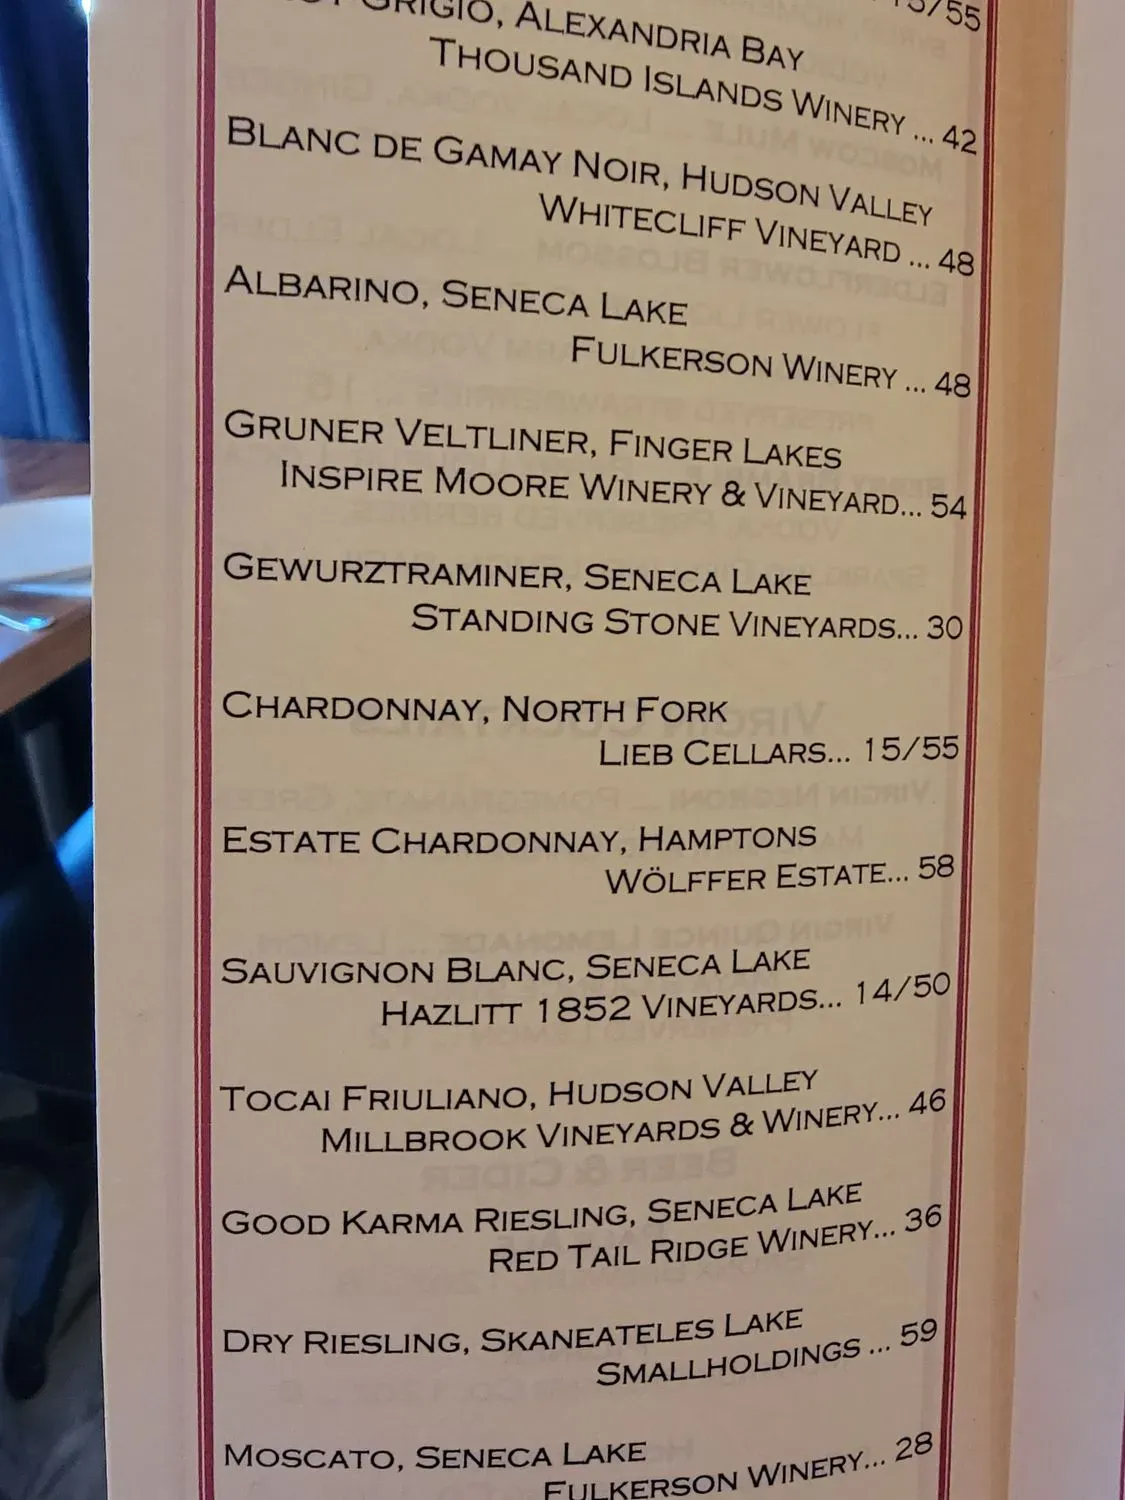 15/55
GRIGIO, ALEXANDRIA BAY
THOUSAND ISLANDS WINERY ... 42
BLANC DE GAMAY NOIR, HUDSON VALLEY
WHITECLIFF VINEYARD ... 48
ALBARINO, SENECA LAKE
FULKERSON WINERY ... 48
GRUNER VELTLINER, FINGER LAKES
INSPIRE MOORE WINERY & VINEYARD... 54
GEWURZTRAMINER, SENECA LAKE
STANDING STONE VINEYARDS... 30
CHARDONNAY, NORTH FORK
LIEB CELLARS... 15/55
ESTATE CHARDONNAY, HAMPTONS
WÖLFFER ESTATE... 58
SAUVIGNON BLANC, SENECA LAKE
HAZLITT 1852 VINEYARDS... 14/50
TOCAI FRIULIANO, HUDSON VALLEY
MILLBROOK VINEYARDS & WINERY... 46
GOOD KARMA RIESLING, SENECA LAKE
RED TAIL RIDGE WINERY... 36
DRY RIESLING, SKANEATELES LAKE
SMALLHOLDINGS ... 59
MOSCATO, SENECA LAKE
FULKERSON WINERY... 28